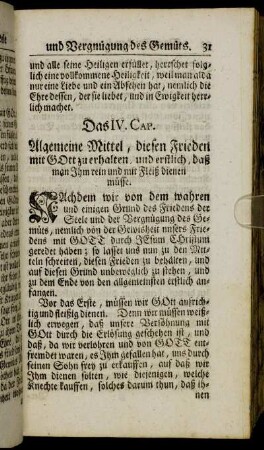 und Vergnügung des Gemüts. 31
und alle seine Heiligen erfüllet, herrschet folg-
lich eine vollkommene Heiligkeit, weil man alda
nur eine Liebe und ein Absehen hat, nemlich die
Ehre dessen, der sie liebet, und in Ewigkeit herr-
lich machet.
Das IV. CAP.
Allgemeine Mittel, diesen Frieden
mit GOtt zu erhalten, und erstlich, daß
man Ihm rein und mit Fleiß dienen
müsse.
NAchdem wir von dem wahren
und einigen Grund des Friedens der
Seele und der Vergnügung des Ge-
müts, nemlich von der Gewisheit unsers Frie-
dens mit GOTT durch JEsum Christum
geredet haben; so lasset uns nun zu den Mit-
teln schreiten, diesen Frieden zu behalten, und
auf diesen Grund unbeweglich zu stehen, und
zu dem Ende von den allgemeinsten erstlich an-
fangen.
Vor das Erste, müssen wir GOtt aufrich-
tig und fleißig dienen. Denn wir müssen weiß-
lich erwegen, daß unsere Versöhnung mit
GOtt durch die Erlösung geschehen ist, und
daß, da wir verlohren und von GOTT ent-
fremdet waren, es Ihm gefallen hat, uns durch
seinen Sohn frey zu erkauffen, auf daß wir
Ihm dienen solten, wie diejenigen, welche
Knechte kauffen, solches darum thun, daß ih-
nen